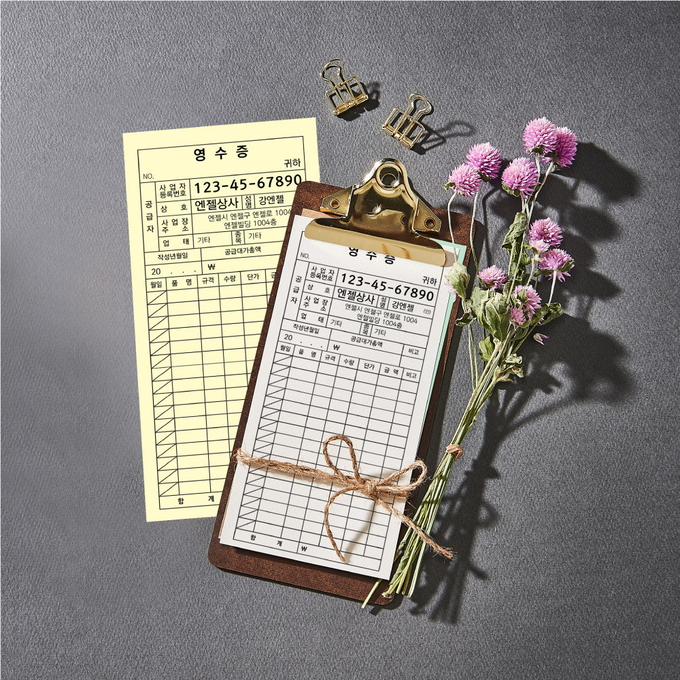 영 수 증
귀하
NO.
공급자
사업자등록번호 123-45-67890
상 호 엔젤상사 성명 강엔젤
사업장주소 엔젤시 엔젤구 엔젤로 1004
엔젤빌딩 1004층
업 태 기타 종목 기타
작성년월일 공급대가총액
20 . . . ₩
월일 품 명 규격 수량 단가
합 계
영 수 증
NO. 귀하
공급자
사업자등록번호 123-45-67890
상 호 엔젤상사 성명 강엔젤 (인)
사업장주소 엔젤시 엔젤구 엔젤로 1004
엔젤빌딩 1004층
업 태 기타 종목 기타
작성년월일 공급대가총액 비고
20 . . . ₩
월일 품 명 규격 수량 단가 금 액 비고
합 계 ₩